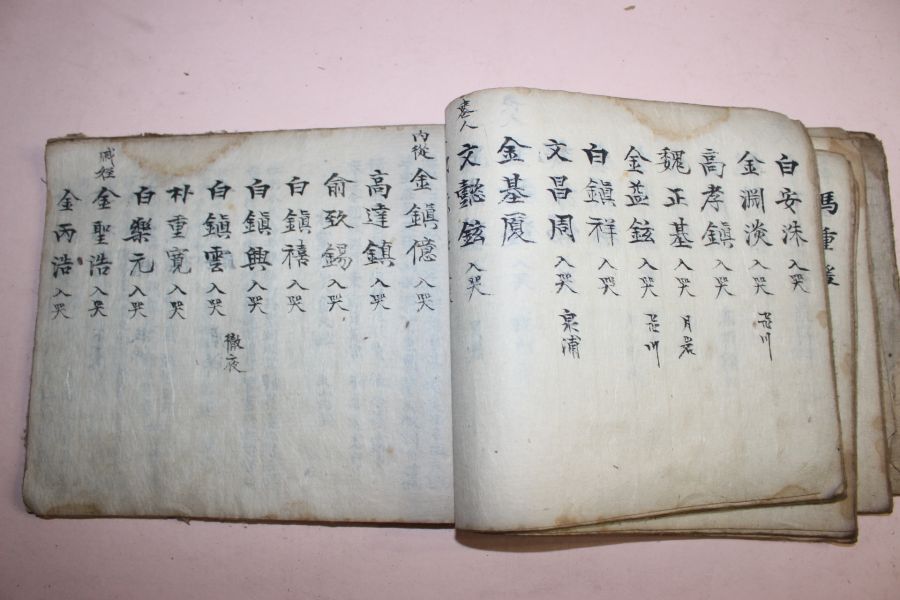 馬重
白安洙 入哭
金淵淡 入哭
高孝鎭 入哭
魏正基 入哭 月岩
金益鉉 入哭
白鎭祥 入哭
文昌周 入哭 泉浦
金基厦
文懿鉉 入哭
內從 金鎭億 入哭
高達鎭 入哭
俞致錫 入哭
白鎭禧 入哭
白鎭興 入哭
白鎭雲 入哭 徹夜
朴重寬 入哭
白樂元 入哭
戚姪 金聖浩 入哭
金丙浩 入哭